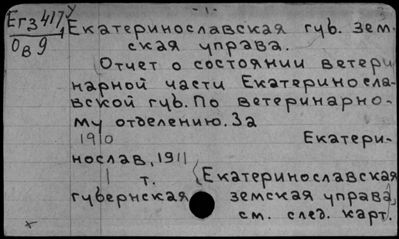 Ег3 4174
Ов9
- 1 -
Екатеринославская губ. зем-
ская управа.
Отчет о состоянии ветери-
нарной части Екатериносла-
вской губ. По ветеринарно-
му отделению. За
1910 Екатери-
нослав, 1911
1 т. (Екатеринославская
губернская земская управа,
см. след. карт.